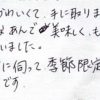 かわいくて、手に取りま
なあんで 美味しく、も
いました。
に伺って季節限定
です。